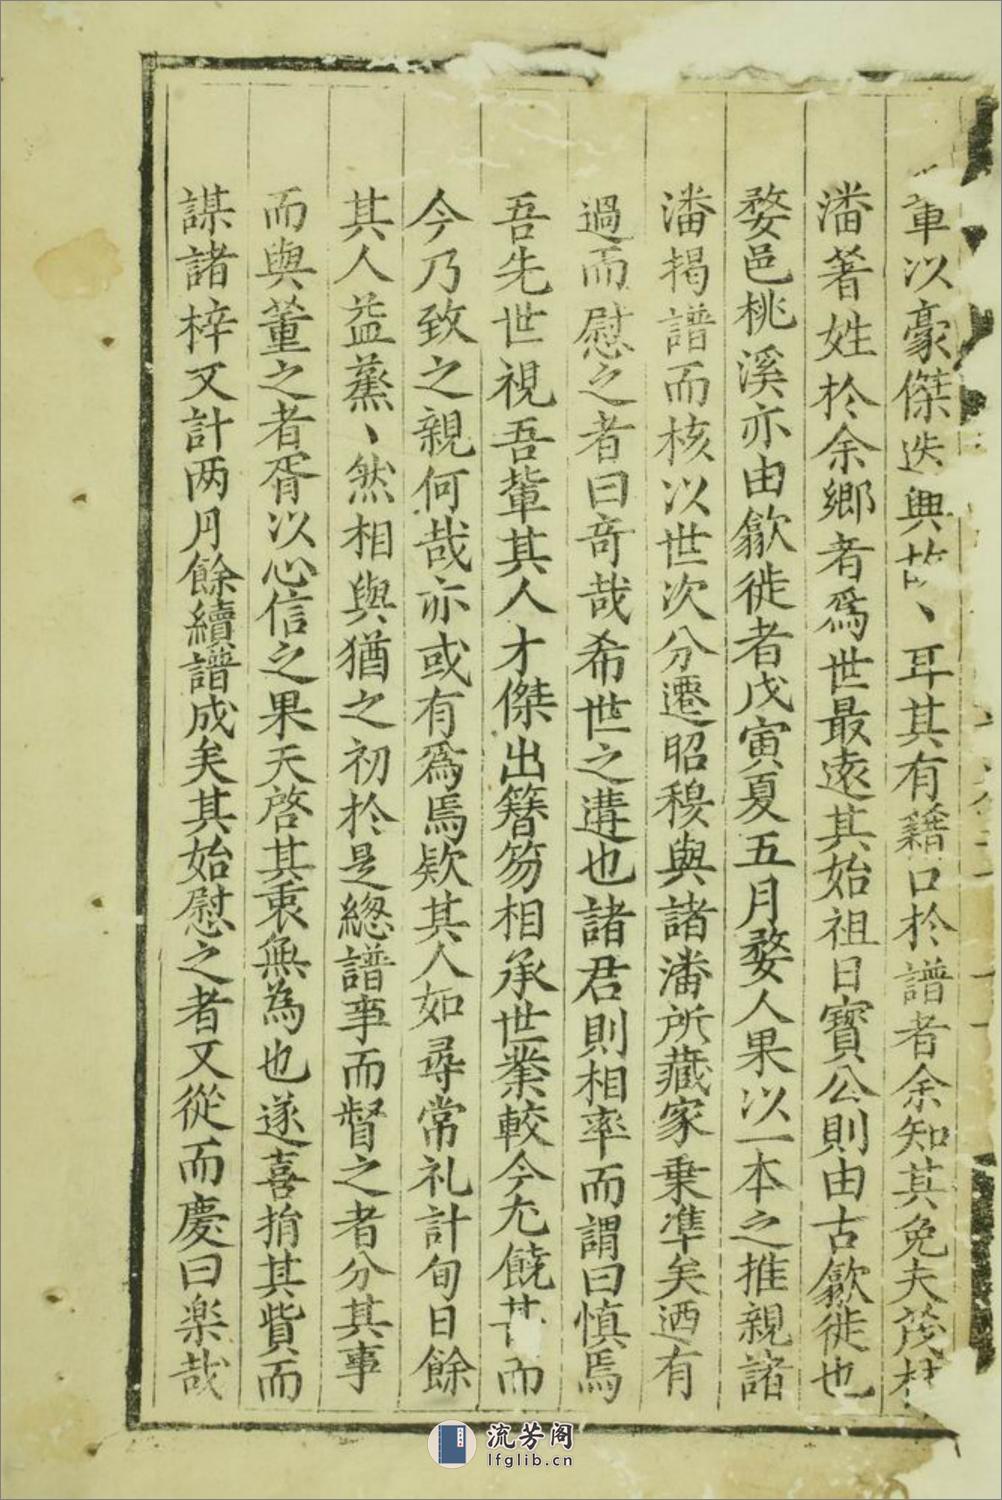 軰以豪傑迭興故丶耳其有籍口於譜者余知其免夫茂
潘著姓於余鄉者爲世最遠其始祖日寶公則由古歙徙也
婺邑桃溪亦由歙徙者戊寅夏五月婺人果以一本之推親諸
潘揭譜而核以世次分遷昭穆與諸潘所藏家乗準矣迺有
過而慰之者曰竒哉希世之遘也諸君則相率而謂曰慎焉
吾先世視吾軰其人才傑出簪笏相承世業較今尢饒其而
今乃致之親何哉亦或有爲焉欵其人如尋常礼計旬日餘
其人益蒸丶然相與猶之初於是緫譜事而督之者分其事
而與董之者胥以心信之果天啓其衷無為也遂喜捐其貲而
謀諸梓又計两月餘續譜成矣其始慰之者又從而慶曰楽哉
流芳阁
lfglib.cn